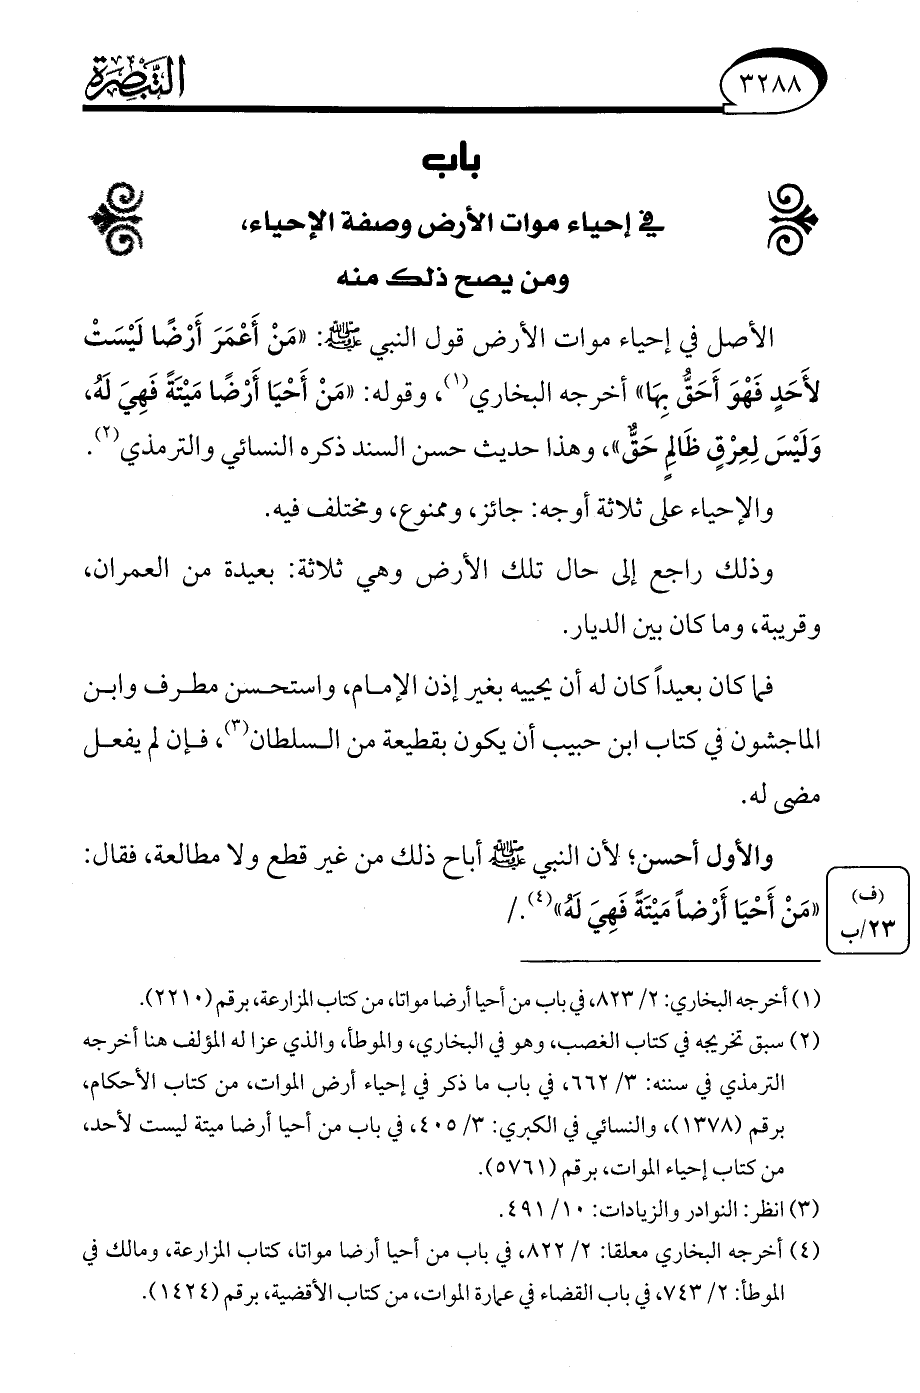 التبصرة
٣٢٨٨
باب
في إحياء موات الأرض وصفة الإحياء،
ومن يصح ذلك منه
الأصل في إحياء موات الأرض قول النبي ﷺ: «مَنْ أَعْمَرَ أَرْضًا لَيْسَتْ
لأَحَدٍ فَهْوَ أَحَقُّ بِهَا» أخرجه البخاري(١)، وقوله: «مَنْ أَحْيَا أَرْضًا مَيْتَةً فَهِيَ لَهُ،
وَلَيْسَ لِعِرْقٍ ظَالِمٍ حَقٌّ»، وهذا حديث حسن السند ذكره النسائي والترمذي(٢).
والإحياء على ثلاثة أوجه: جائز، وممنوع، ومختلف فيه.
وذلك راجع إلى حال تلك الأرض وهي ثلاثة: بعيدة من العمران،
وقريبة، وما كان بين الديار.
فما كان بعيداً كان له أن يحييه بغير إذن الإمام، واستحسن مطرف وابن
الماجشون في كتاب ابن حبيب أن يكون بقطيعة من السلطان(٣)، فإن لم يفعل
مضى له.
والأول أحسن؛ لأن النبي ﷺ أباح ذلك من غير قطع ولا مطالعة، فقال:
«مَنْ أَحْيَا أَرْضاً مَيْتَةً فَهِيَ لَهُ»(٤)./
(ف)
٢٣/ب
(١) أخرجه البخاري: ٢/ ٨٢٣، في باب من أحيا أرضا مواتا، من كتاب المزارعة، برقم (٢٢١٠).
(٢) سبق تخريجه في كتاب الغصب، وهو في البخاري، والموطأ، والذي عزا له المؤلف هنا أخرجه
الترمذي في سننه: ٣/ ٦٦٢، في باب ما ذكر في إحياء أرض الموات، من كتاب الأحكام،
برقم (١٣٧٨)، والنسائي في الكبرى: ٣/ ٤٠٥، في باب من أحيا أرضا ميتة ليست لأحد،
من كتاب إحياء الموات، برقم (٥٧٦١).
(٣) انظر: النوادر والزيادات: ١٠/ ٤٩١.
(٤) أخرجه البخاري معلقا: ٢/ ٨٢٢، في باب من أحيا أرضا مواتا، كتاب المزارعة، ومالك في
الموطأ: ٢/ ٧٤٣، في باب القضاء في عمارة الموات، من كتاب الأقضية، برقم (١٤٢٤).